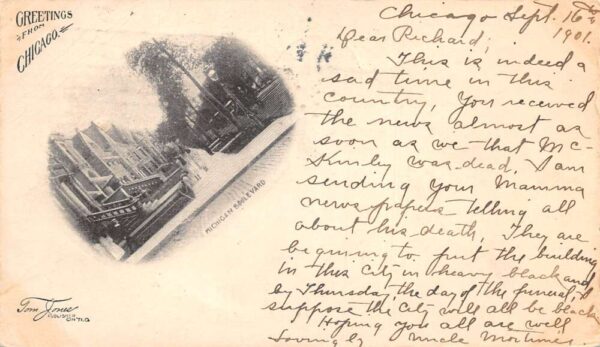 GREETINGS
FROM
CHICAGO.
MICHIGAN BOULEVARD
Tom Jones
PUBLISHER
Chicago Sept. 16th
1901.
Dear Richard,
This is indeed a
sad time in this
country, You received
the news almost as
soon as we - that Mc-
Kinley was dead, I am
sending your Mamma
newspapers telling all
about his death, They are
beginning to put the building
in this City in heavy black and
by Thursday, the day of the funeral, I
suppose the City will all be black
Hoping you all are well
Lovingly Uncle Mortimer